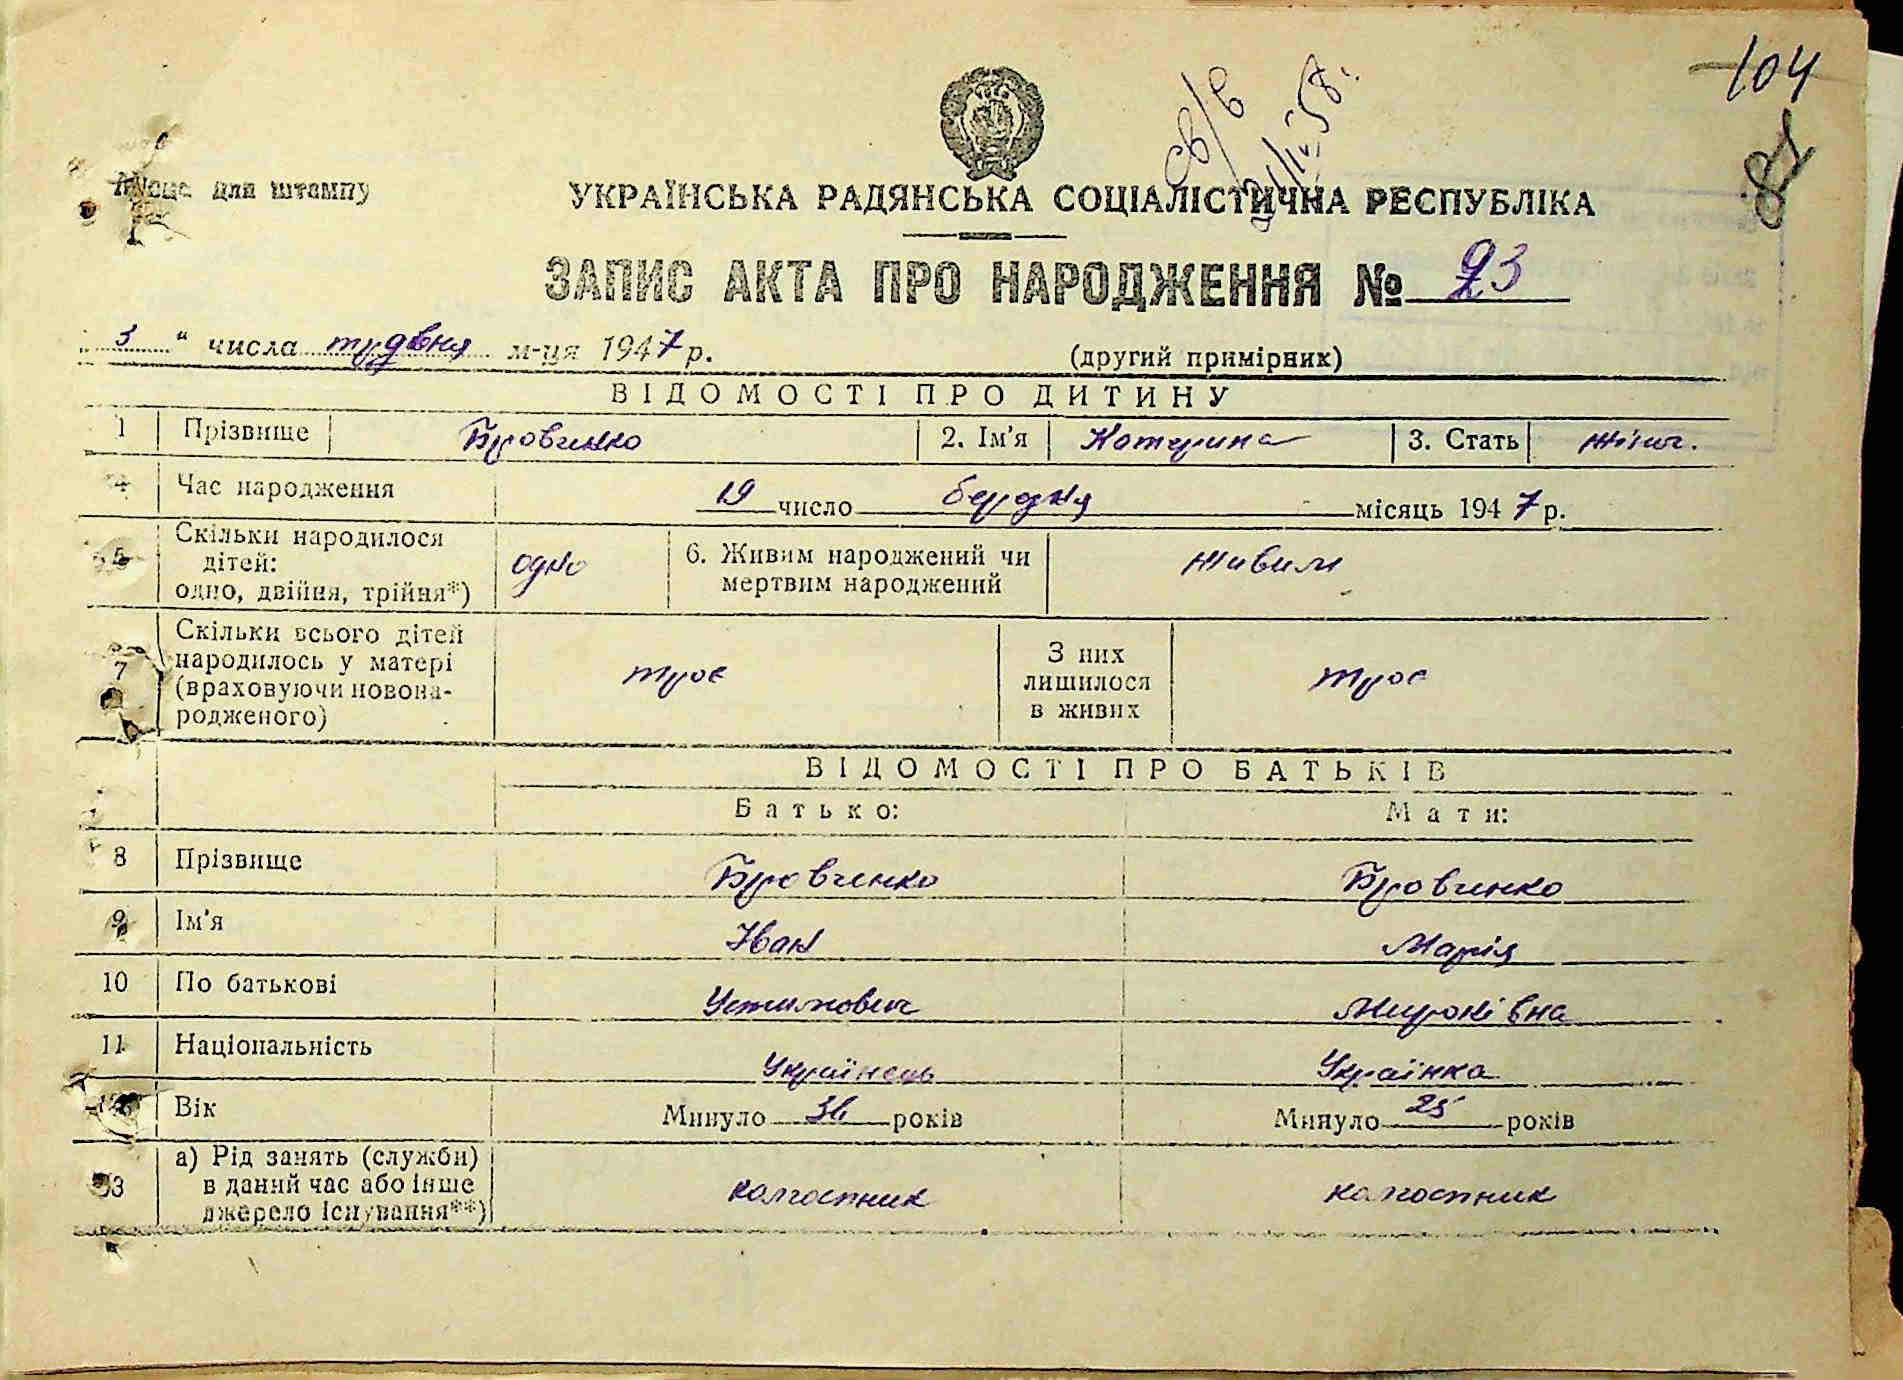 104
81
св/в
Місце для штампу
УКРАЇНСЬКА РАДЯНСЬКА СОЦІАЛІСТИЧНА РЕСПУБЛІКА
ЗАПИС АКТА ПРО НАРОДЖЕННЯ № 93
„ 3 " числа грудня м-ця 1947 р.
(другий примірник)
ВІДОМОСТІ ПРО ДИТИНУ
1 Прізвище Бровченко 2. Ім'я Катерина 3. Стать жіноч.
4 Час народження 19 число березня місяць 1947 р.
5 Скільки народилося дітей: одно, двійня, трійня*) одно 6. Живим народжений чи мертвим народжений живим
7 Скільки всього дітей народилось у матері (враховуючи новонародженого) троє З них лишилося в живих троє
ВІДОМОСТІ ПРО БАТЬКІВ
Батько: Мати:
8 Прізвище Бровченко Бровченко
9 Ім'я Іван Марія
10 По батькові Устимович Миронівна
11 Національність Українець Українка
12 Вік Минуло 36 років Минуло 25 років
13 а) Рід занять (служби) в даний час або інше джерело існування**) колгоспник колгоспник